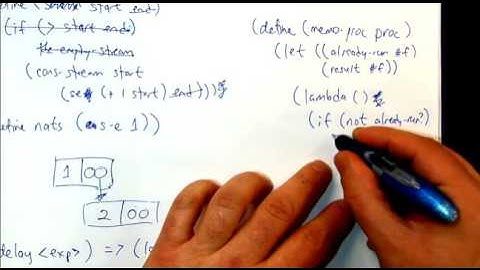 start end)
(if (> start end)
the-empty-stream
(cons-stream start
(+ 1 start) end)))
nats ( 1))
1 00
2 00
delay <exp>) => (la
(define (memo-proc proc)
(let ((already-run #f)
(result #f))
(lambda ()
(if (not already-run?)